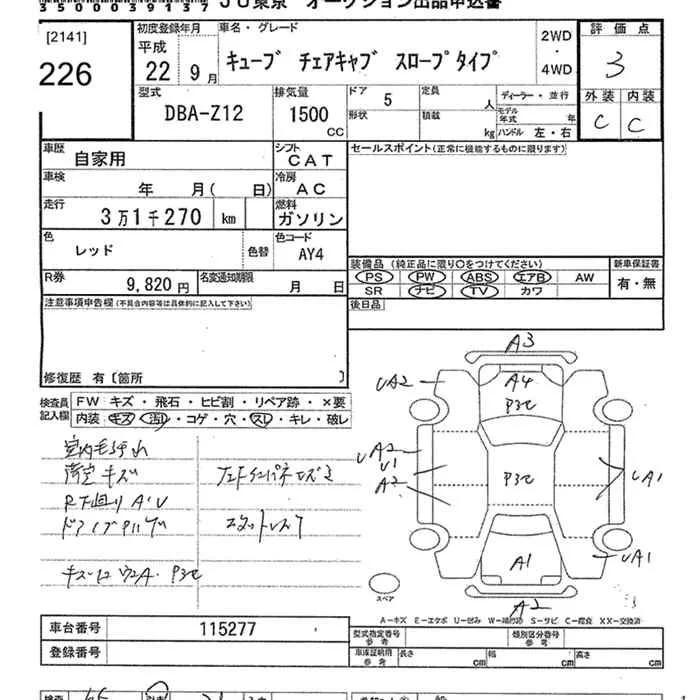 35000391
JU東京 オークション出品申込書
[2141]
226
初度登録年月
平成
22年9月
車名・グレード
キューブ チェアキャブ スロープタイプ
2WD
・
4WD
評価点
3
外装 内装
C C
型式
DBA-Z12
排気量
1500
CC
ドア 5
形状
定員 人
積載 kg
ディーラー・並行
モデル年式 年
ハンドル 左・右
車歴
自家用
シフト
CAT
セールスポイント(正常に機能するものに限ります)
車検
年 月( 日)
冷房
AC
走行
3万1千270 km
燃料
ガソリン
色
レッド
色替
色コード
AY4
R券
9,820円
名変通知期限
月 日
装備品 (純正品に限り○をつけてください)
PS PW ABS エアB AW
SR ナビ TV カワ
新車保証書
有・無
後日品
注意事項申告欄(不具合内容等は具体的に記入して下さい)
修復歴 有〔箇所 〕
検査員記入欄
FW キズ・飛石・ヒビ割・リペア跡・×要
内装・キズ・汚レ・コゲ・穴・スレ・キレ・破レ
キズ
A3
UA2
A4
P3C
UA2
U1
A2
P3C
UA1
A1
UA1
A2
スペア
A―キズ E―エクボ U―凹み W―補修跡 S―サビ C―腐食 XX―交換済
車台番号 115277
登録番号
型式指定番号 参考
類別区分番号 参考
車庫証明用 参考
長さ cm
幅 cm
高さ cm